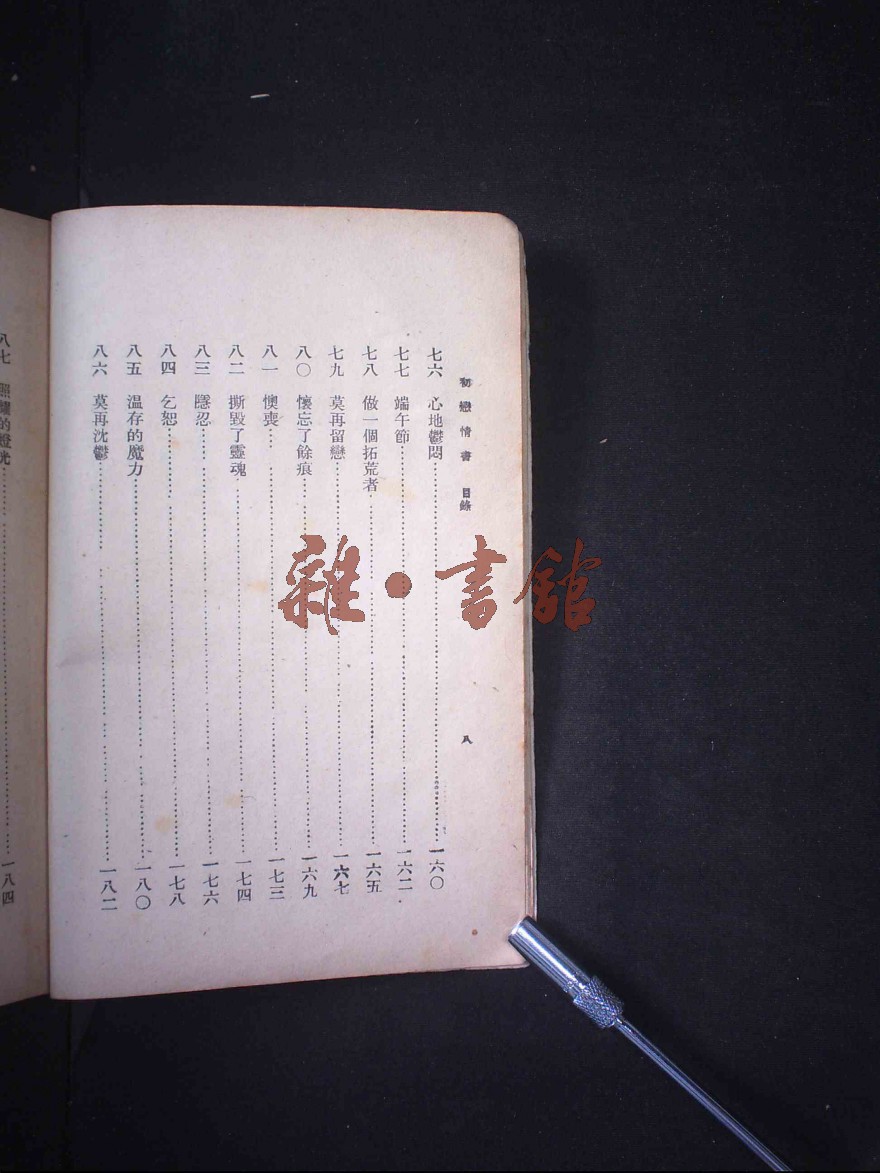 初戀情書　目錄　八
七六　心地鬱悶……一六〇
七七　端午節……一六二
七八　做一個拓荒者……一六五
七九　莫再留戀……一六七
八〇　懷忘了餘痕……一六九
八一　懊喪……一七三
八二　撕毀了靈魂……一七四
八三　隱忍……一七六
八四　乞恕……一七八
八五　温存的魔力……一八〇
八六　莫再沈鬱……一八二
八七　照耀的燈光……一八四
雜·書館